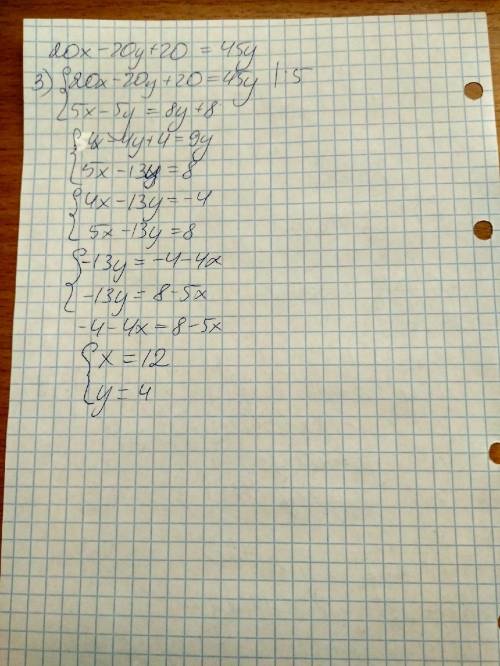 20x-20y+20 = 45y
3) {20x-20y+20=45y |:5
5x-5y = 8y+8
{4x-4y+4=9y
5x-13y=8
{4x-13y=-4
5x-13y=8
{-13y=-4-4x
-13y=8-5x
-4-4x=8-5x
{x=12
y=4